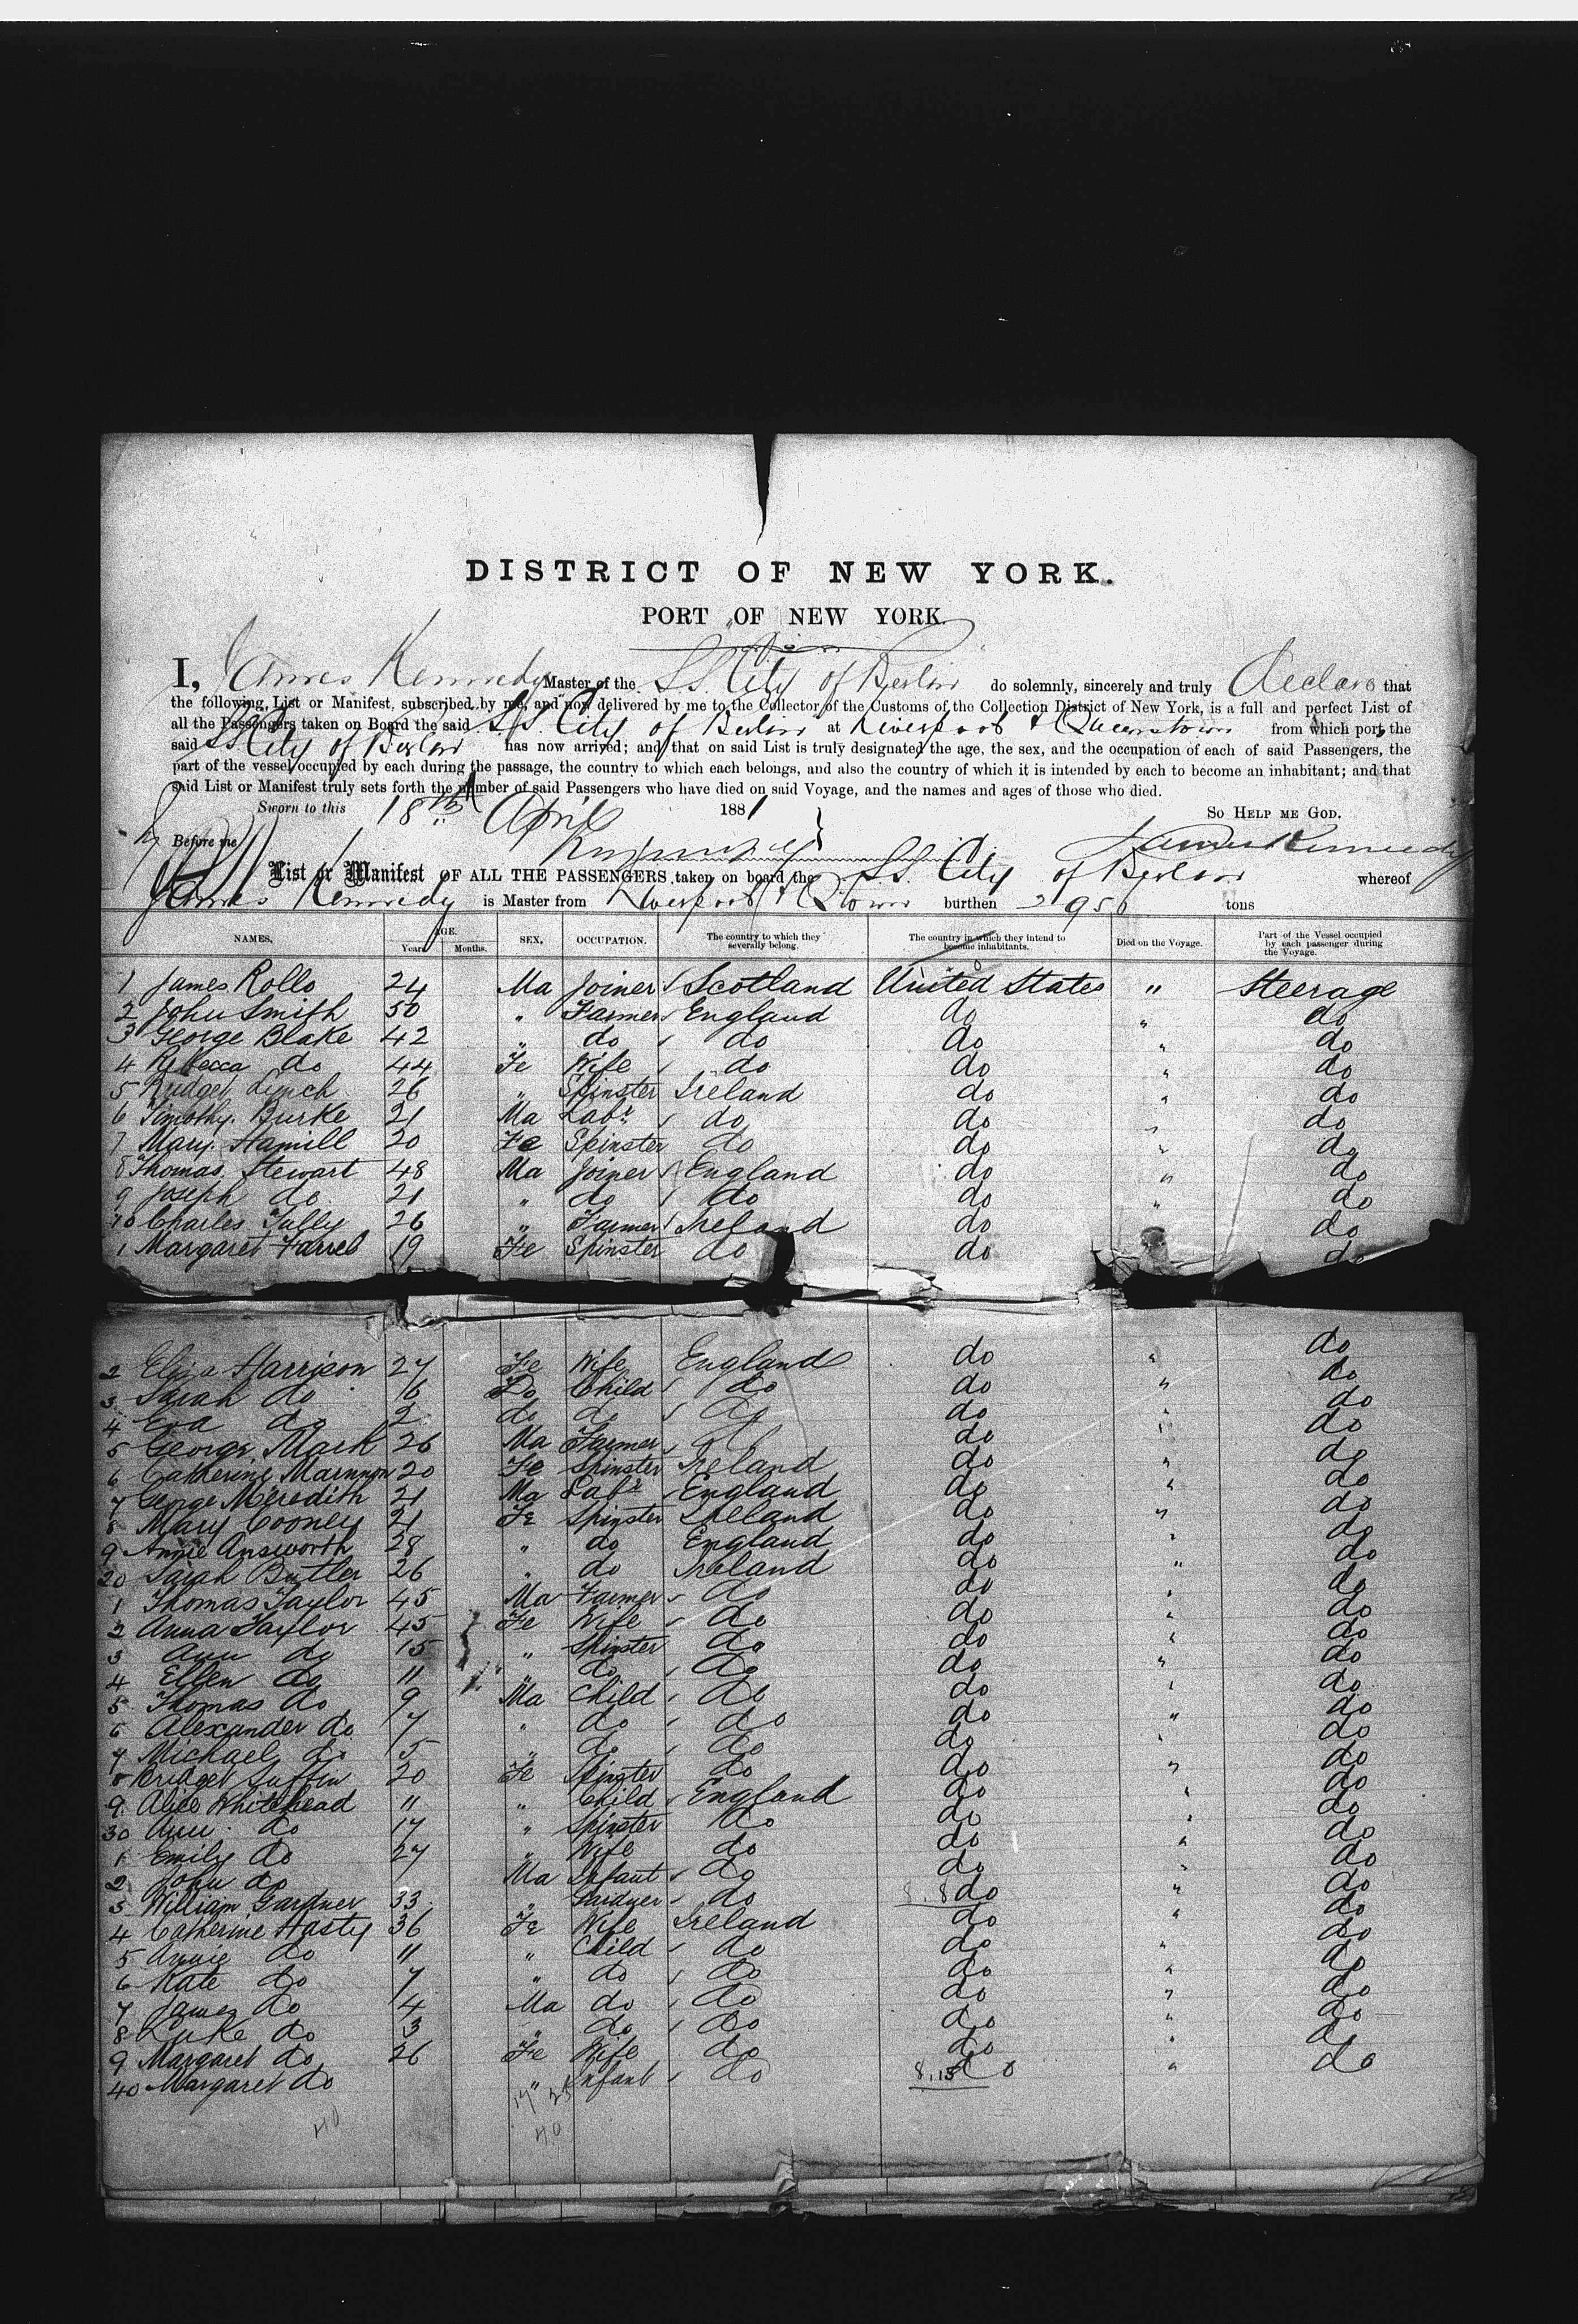 DISTRICT OF NEW YORK.
PORT OF NEW YORK.
I, James Kennedy Master of the S.S. City of Berlin do solemnly, sincerely and truly declare that
the following List or Manifest, subscribed by me, and now delivered by me to the Collector of the Customs of the Collection District of New York, is a full and perfect List of
all the Passengers taken on Board the said S.S. City of Berlin at Liverpool & Queenstown from which port the
said SS City of Berlin has now arrived; and that on said List is truly designated the age, the sex, and the occupation of each of said Passengers, the
part of the vessel occupied by each during the passage, the country to which each belongs, and also the country of which it is intended by each to become an inhabitant; and that
said List or Manifest truly sets forth the number of said Passengers who have died on said Voyage, and the names and ages of those who died.
Sworn to this 18th April 1881 So Help me God.
Before me James Kennedy
List or Manifest OF ALL THE PASSENGERS taken on board the S.S. City of Berlin whereof
James Kennedy is Master from Liverpool & Qtown burthen 2956 tons
NAMES. AGE. Years. Months. SEX. OCCUPATION. The country to which they severally belong. The country in which they intend to become inhabitants. Died on the Voyage. Part of the Vessel occupied by each passenger during the Voyage.
1 James Rollo 24 Ma Joiner Scotland United States " Steerage
2 John Smith 50 " Farmer England do " do
3 George Blake 42 " do do do " do
4 Rebecca do 44 Fe Wife do do " do
5 Bridget Lynch 26 " Spinster Ireland do " do
6 Timothy Burke 21 Ma Labr do do " do
7 Mary Hamill 20 Fe Spinster do do " do
8 Thomas Stewart 48 Ma Joiner England do " do
9 Joseph do 21 " do do do " do
10 Charles Tully 26 " Farmer Ireland do do
1 Margaret Farrel 19 Fe Spinster do do do
2 Eliza Harrison 27 Fe Wife England do " do
3 Sarah do 6 Do Child do do " do
4 Eva do 2 do do do do " do
5 George Mark 26 Ma Farmer do do " do
6 Catherine 20 Fe Spinster Ireland do " do
7 George Meredith 21 Ma Labr England do " do
8 Mary Cooney 21 Fe Spinster Ireland do " do
9 Annie Answorth 28 " do England do " do
20 Sarah Butler 26 " do Ireland do " do
1 Thomas Taylor 45 Ma Farmer do do " do
2 Anna Taylor 45 Fe Wife do do " do
3 Ann do 15 " Spinster do do " do
4 Ellen do 11 " do do do " do
5 Thomas do 9 Ma Child do do " do
6 Alexander do 7 " do do do " do
7 Michael do 5 " do do do " do
8 Bridget 20 Fe Spinster do do " do
9 Alice Whitehead 11 " Child England do " do
30 Ann do 17 " Spinster do do " do
1 Emily do 27 " Wife do do " do
2 John do Ma Infant do do " do
3 William Gardner 33 " Gardner do 8.8 do " do
4 Catherine Hasty 36 Fe Wife Ireland do " do
5 Annie do 11 " Child do do " do
6 Kate do 7 " do do do " do
7 James do 4 Ma do do do " do
8 Luke do 3 " do do do " do
9 Margaret do 26 Fe Wife do do " do
40 Margaret do " Infant do 8.15 do " do
40